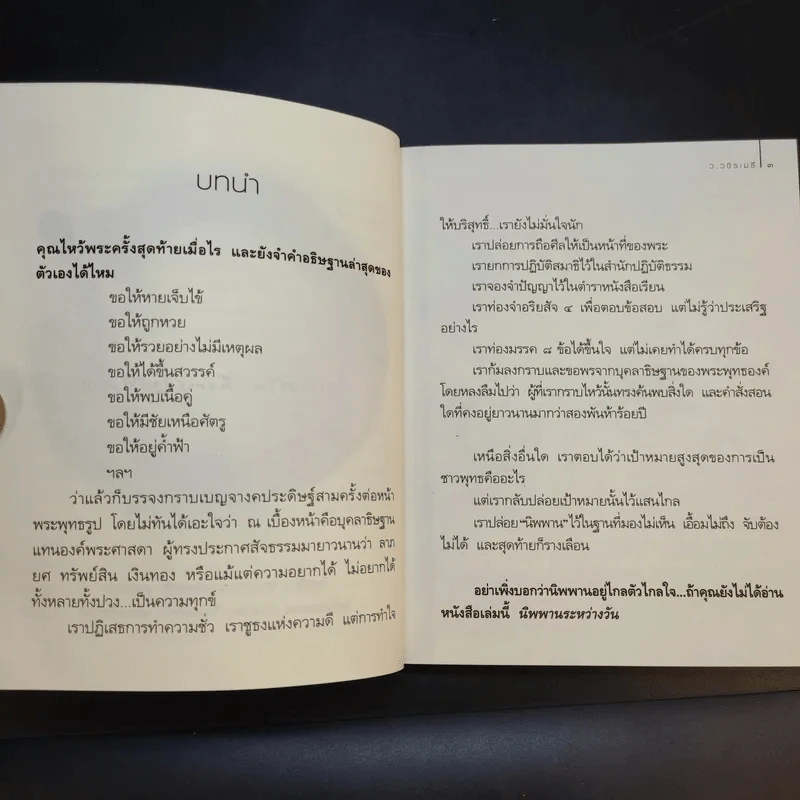 บทนำ
คุณไหว้พระครั้งสุดท้ายเมื่อไร และยังจำคำอธิษฐานล่าสุดของ
ตัวเองได้ไหม
ขอให้หายเจ็บไข้
ขอให้ถูกหวย
ขอให้รวยอย่างไม่มีเหตุผล
ขอให้ได้ขึ้นสวรรค์
ขอให้พบเนื้อคู่
ขอให้มีชัยเหนือศัตรู
ขอให้อยู่ค้ำฟ้า
ฯลฯ
ว่าแล้วก็บรรจงกราบเบญจางคประดิษฐ์สามครั้งต่อหน้า
พระพุทธรูป โดยไม่ทันได้เอะใจว่า ณ เบื้องหน้าคือบุคลาธิษฐาน
แทนองค์พระศาสดา ผู้ทรงประกาศสัจธรรมมายาวนานว่า ลาภ
ยศ ทรัพย์สิน เงินทอง หรือแม้แต่ความอยากได้ ไม่อยากได้
ทั้งหลายทั้งปวง...เป็นความทุกข์
เราปฏิเสธการทำความชั่ว เราชูธงแห่งความดี แต่การทำใจ
ว.วชิรเมธี ๓
ให้บริสุทธิ์...เรายังไม่มั่นใจนัก
เราปล่อยการถือศีลให้เป็นหน้าที่ของพระ
เรายกการปฏิบัติสมาธิไว้ในสำนักปฏิบัติธรรม
เราจองจำปัญญาไว้ในตำราหนังสือเรียน
เราท่องจำอริยสัจ ๔ เพื่อตอบข้อสอบ แต่ไม่รู้ว่าประเสริฐ
อย่างไร
เราท่องมรรค ๘ ข้อได้ขึ้นใจ แต่ไม่เคยทำได้ครบทุกข้อ
เราก้มลงกราบและขอพรจากบุคลาธิษฐานของพระพุทธองค์
โดยหลงลืมไปว่า ผู้ที่เรากราบไหว้นั้นทรงค้นพบสิ่งใด และคำสั่งสอน
ใดที่คงอยู่ยาวนานมากว่าสองพันห้าร้อยปี
เหนือสิ่งอื่นใด เราตอบได้ว่าเป้าหมายสูงสุดของการเป็น
ชาวพุทธคืออะไร
แต่เรากลับปล่อยเป้าหมายนั้นไว้แสนไกล
เราปล่อย “นิพพาน” ไว้ในฐานที่มองไม่เห็น เอื้อมไม่ถึง จับต้อง
ไม่ได้ และสุดท้ายก็รางเลือน
อย่าเพิ่งบอกว่านิพพานอยู่ไกลตัวไกลใจ...ถ้าคุณยังไม่ได้อ่าน
หนังสือเล่มนี้ นิพพานระหว่างวัน